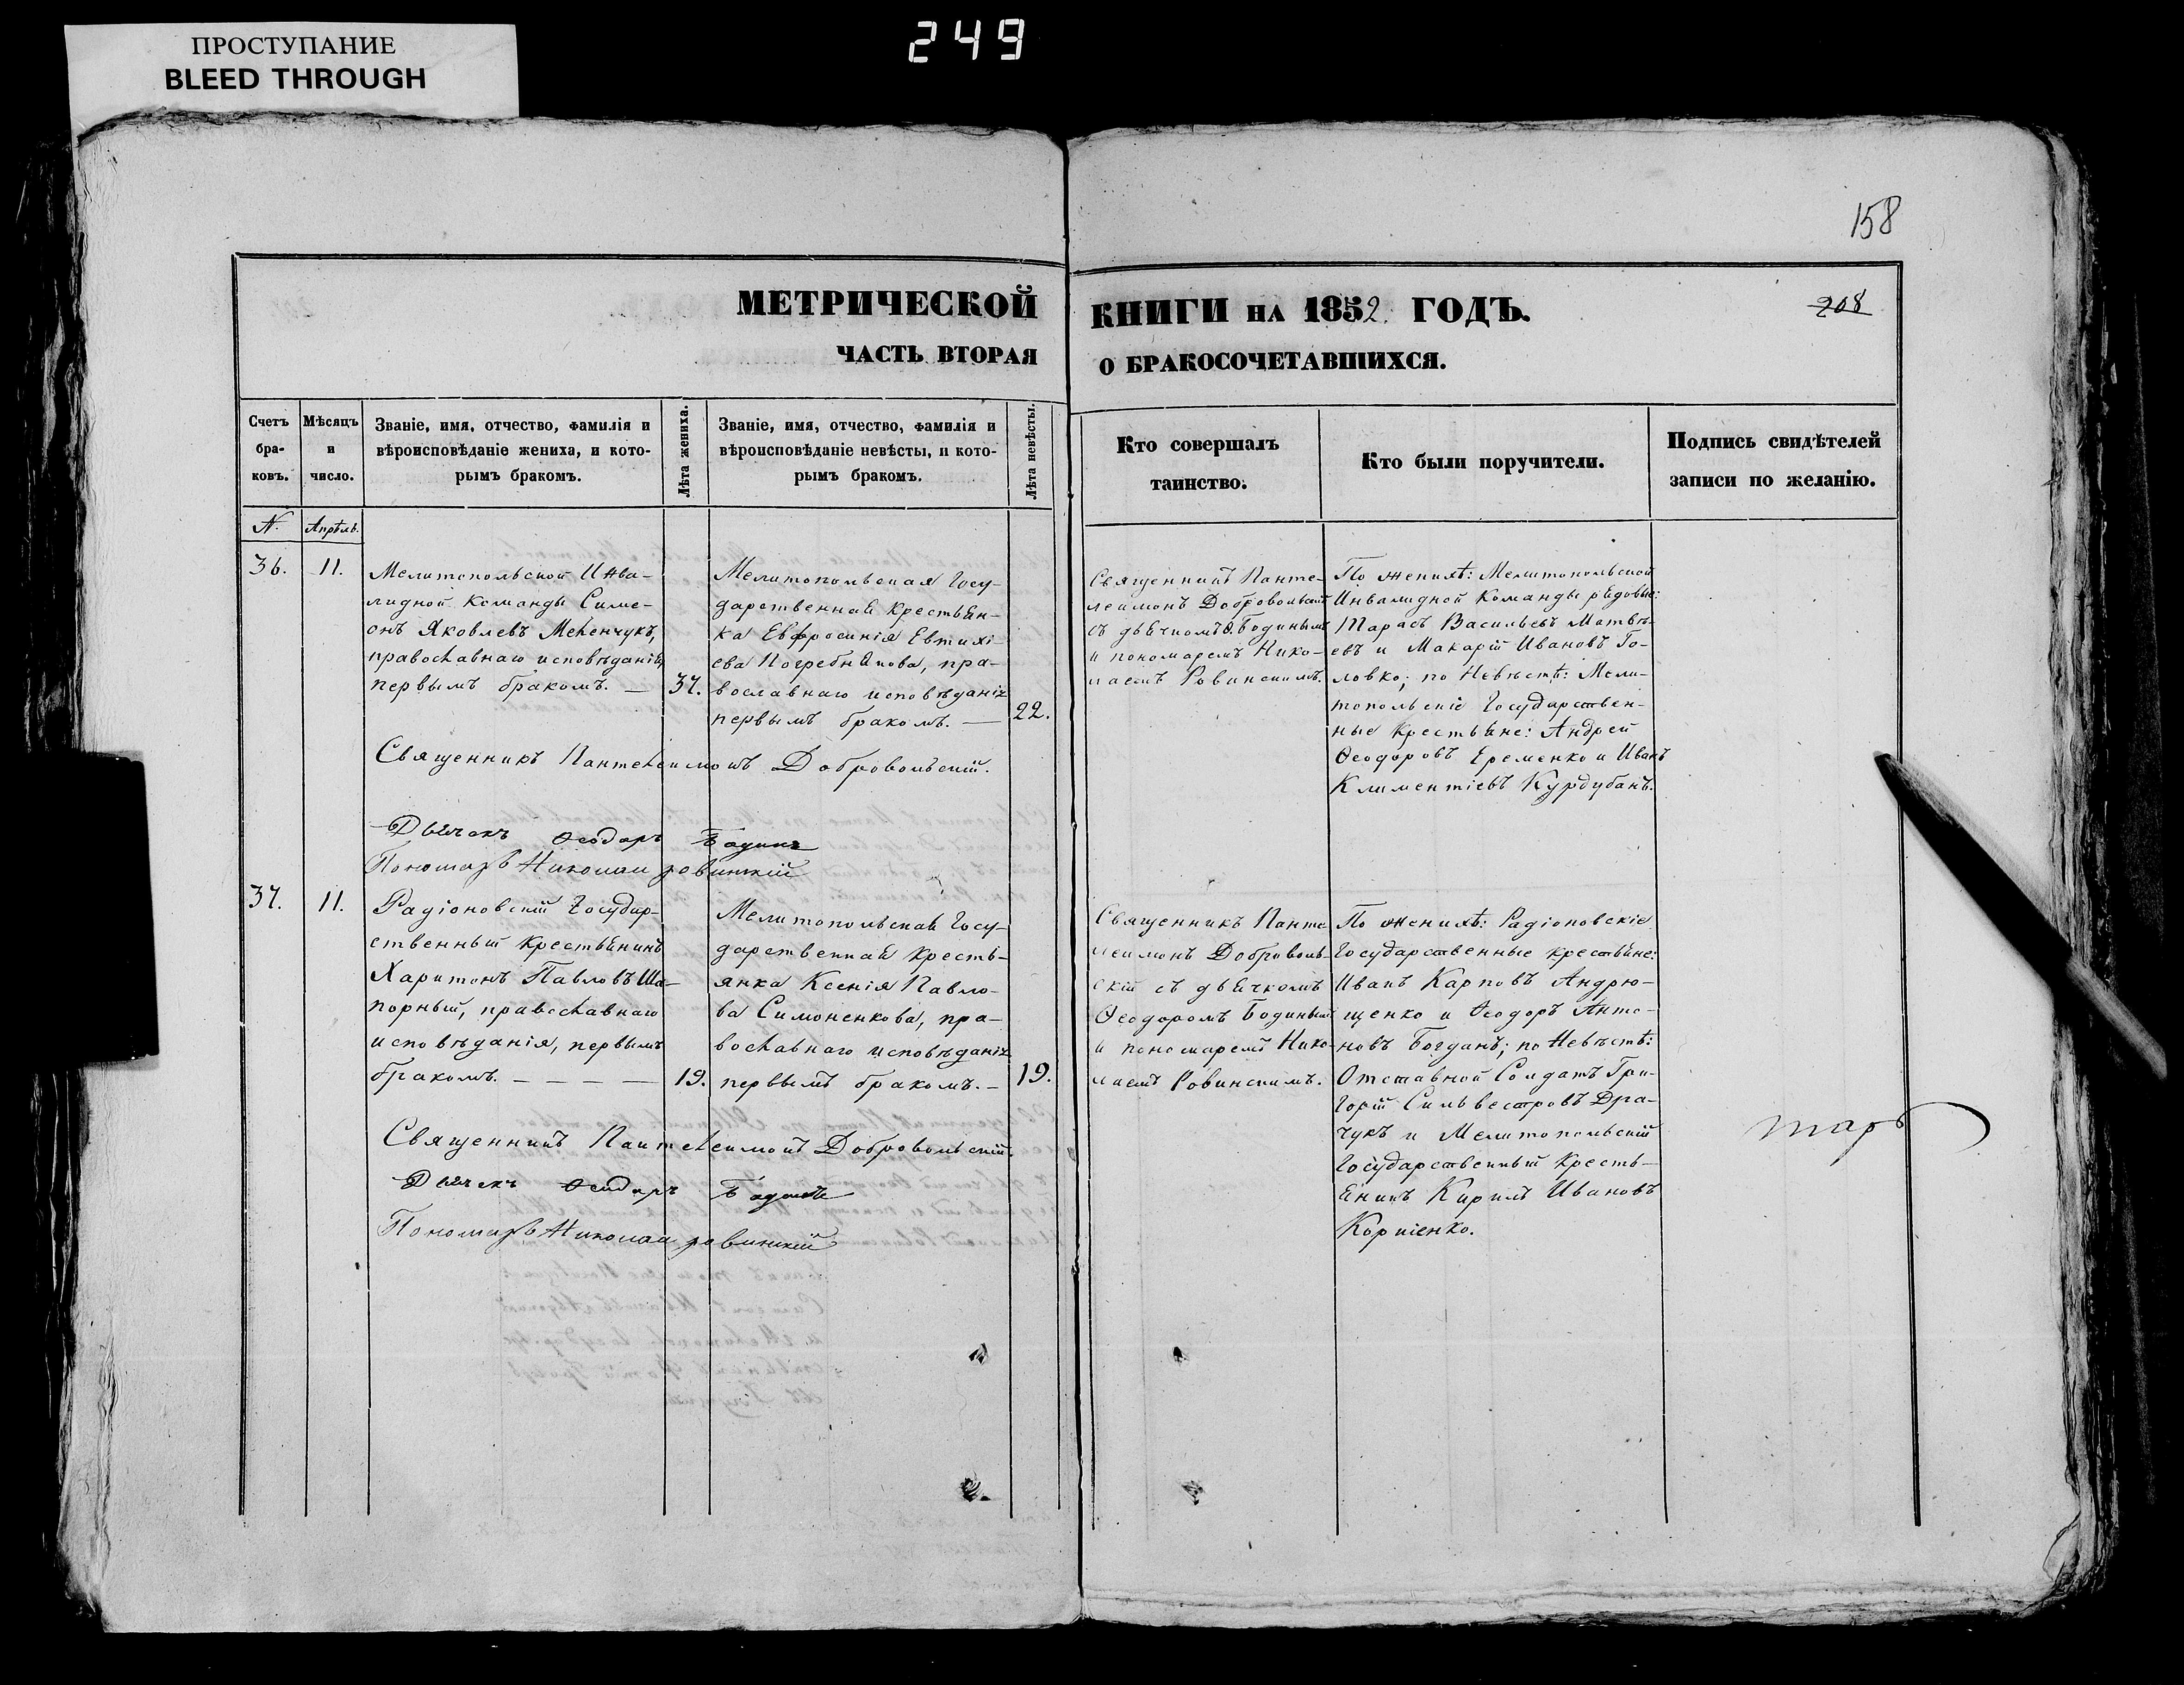 ПРОСТУПАНИЕ
BLEED THROUGH
249
158
МЕТРИЧЕСКОЙ КНИГИ НА 1852 ГОДЪ.
208
ЧАСТЬ ВТОРАЯ О БРАКОСОЧЕТАВШИХСЯ.
Счетъ
бра-
ковъ.
Мѣсяцъ
и
число.
Званіе, имя, отчество, фамилія и
вѣроисповѣданіе жениха, и кото-
рымъ бракомъ.
Лѣта жениха.
Званіе, имя, отчество, фамилія и
вѣроисповѣданіе невѣсты, и кото-
рымъ бракомъ.
Лѣта невѣсты.
Кто совершалъ
таинство.
Кто были поручители.
Подпись свидѣтелей
записи по желанію.
N.
Апрѣль.
36.
11.
Мелитопольской Инва-
лидной Команды Симе-
онъ Яковлевъ Меленчукъ,
православнаго исповѣданія,
первымъ бракомъ. —
37.
Мелитопольская Госу-
дарственная крестьян-
ка Евфросинія Евтихі-
ева Погребнякова, пра-
вославнаго исповѣданія
первымъ бракомъ. —
22.
Священникъ Панте-
леимонъ Добровольскій
съ дьячкомъ Ѳ. Бодинымъ
и пономаремъ Нико-
лаемъ Ровинскимъ.
По женихѣ: Мелитопольской
Инвалидной Команды рядовые:
Тарасъ Васильевъ Матвѣ-
евъ и Макарій Ивановъ Го-
ловко; по Невѣстѣ: Мели-
топольскіе Государствен-
ные крестьяне: Андрей
Ѳеодоровъ Еременко и Иванъ
Климентіевъ Курдубанъ.
Священникъ Пантелеимонъ Добровольскій.
Дьячекъ Ѳеодоръ Бодинъ
Пономарь Николай Ровинскій
37.
11.
Радіоновскій Государ-
ственный крестьянинъ
Харитонъ Павловъ Ша-
порный, православнаго
исповѣданія, первымъ
бракомъ. — — — —
19.
Мелитопольская Госу-
дарственная кресть-
янка Ксенія Павло-
ва Симоненкова, пра-
вославнаго исповѣданія
первымъ бракомъ. —
19.
Священникъ Панте
леимонъ Доброволь-
скій съ дьячкомъ
Ѳеодоромъ Бодинымъ
и пономаремъ Нико-
лаемъ Ровинскимъ.
По женихѣ: Радіоновскіе
Государственные крестьяне:
Иванъ Карповъ Андрю-
щенко и Ѳеодоръ Анто-
новъ Богданъ; по Невѣстѣ:
Отставной Солдатъ Гри-
горій Сильвестровъ Дра-
чукъ и Мелитопольскій
Государственный кресть-
янинъ Кирилъ Ивановъ
Корніенко.
Священникъ Пантелеимонъ Добровольскій.
Дьячекъ Ѳеодоръ Бодинъ
Пономарь Николай Ровинскій
тарь